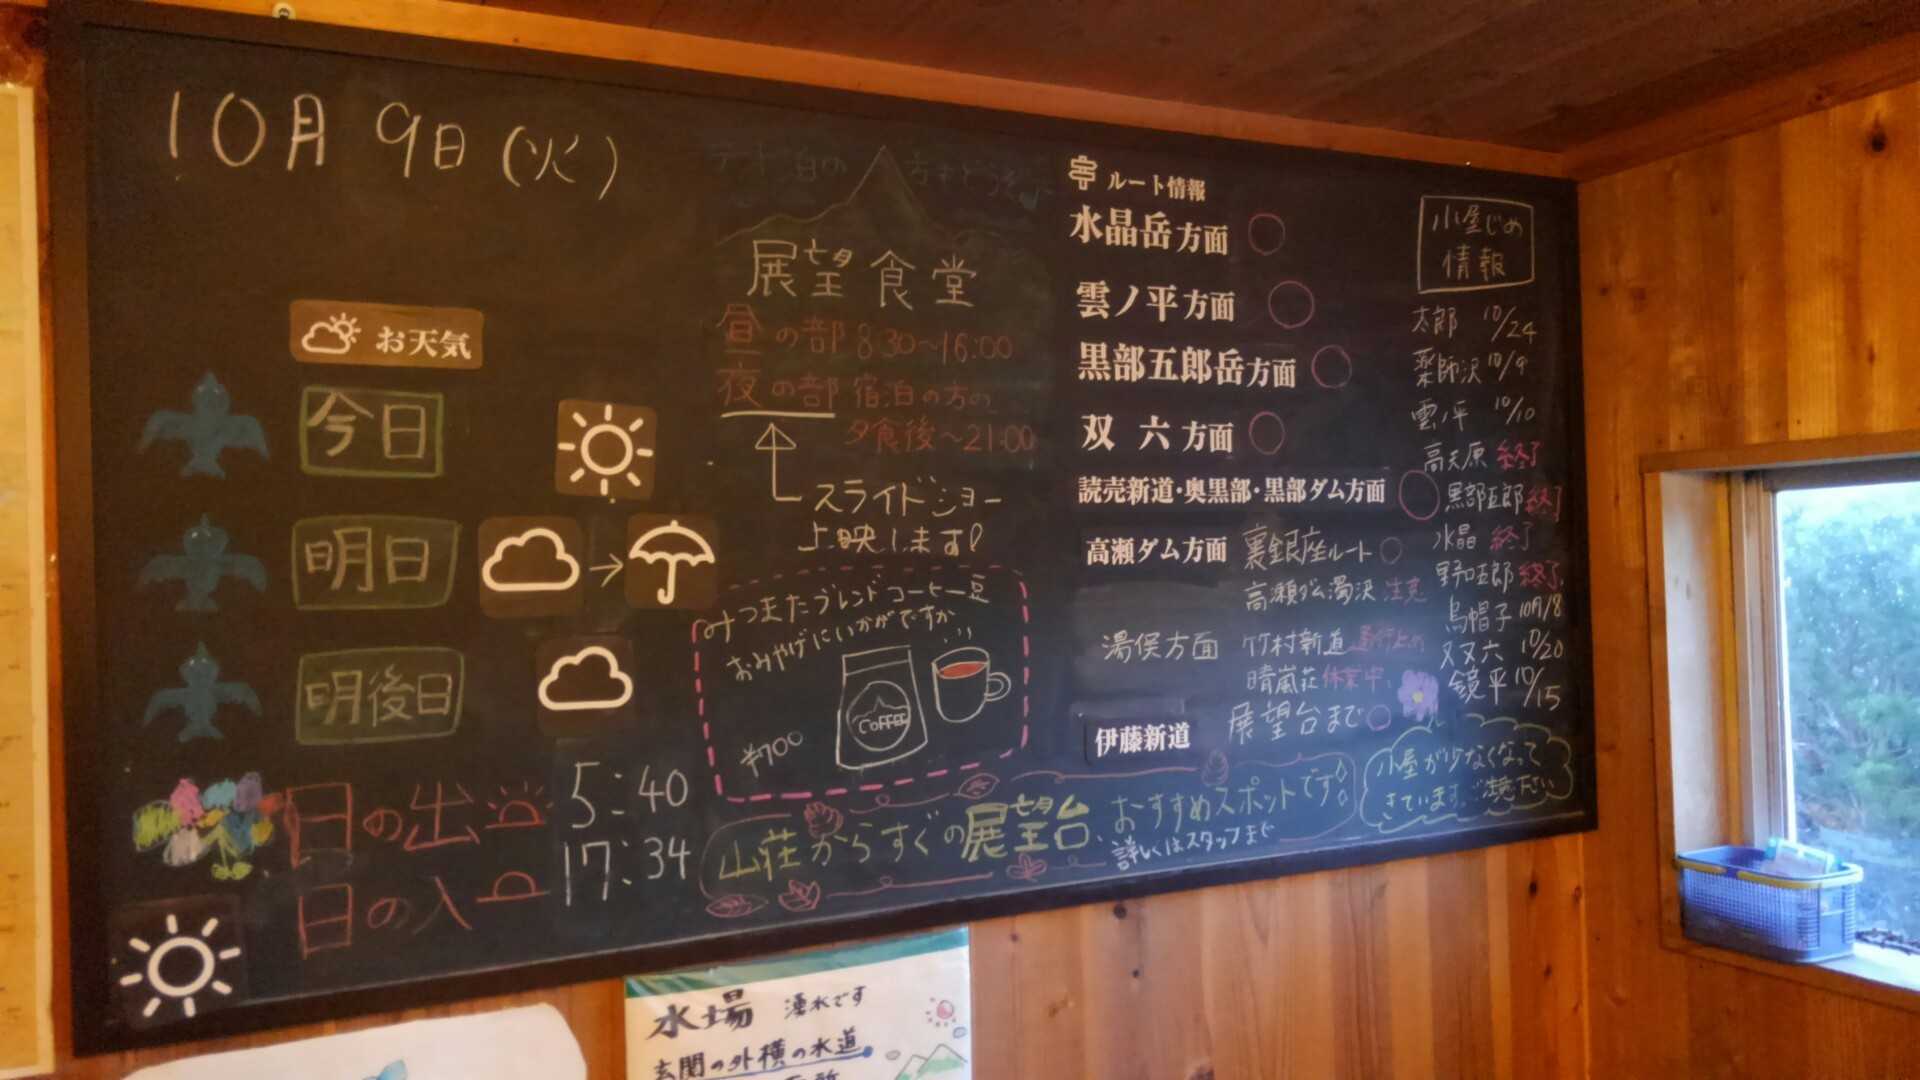 10月9日(火)
お天気
今日
明日
→
明後日
日の出 5:40
日の入 17:34
テント泊の方もどうぞ
展望食堂
昼の部 8:30~16:00
夜の部 宿泊の方の
夕食後~21:00
スライドショー
上映します!
みつまたブレンドコーヒー豆
おみやげにいかがですか
COFFEE
¥700
山荘からすぐの展望台、おすすめスポットです
詳しくはスタッフまで
ルート情報
水晶岳方面 ○
雲ノ平方面 ○
黒部五郎岳方面 ○
双六方面 ○
読売新道・奥黒部・黒部ダム方面 ○
高瀬ダム方面 裏銀座ルート ○
高瀬ダム濁沢 注意
湯俣方面 竹村新道 通行止め
晴嵐荘 休業中
伊藤新道 展望台まで ○
小屋じめ
情報
太郎 10/24
薬師沢 10/9
雲ノ平 10/10
高天原 終了
黒部五郎 終了
水晶 終了
野口五郎 終了
烏帽子 10月/8
双六 10/20
鏡平 10/15
小屋が少なくなって
きています。ご注意ください
水場 湧水です
玄関の外横の水道